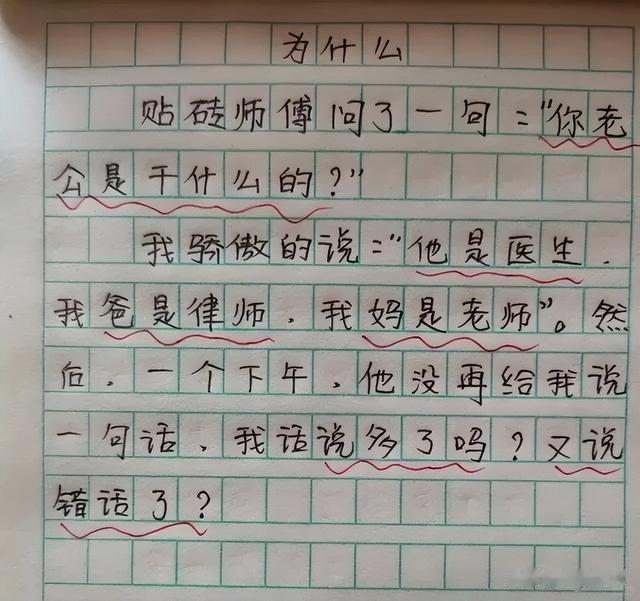 为什么
贴砖师傅问了一句:"你老
公是干什么的?"
我骄傲的说:"他是医生.
我爸是律师.我妈是老师"。然
后.一个下午.他没再给我说
一句话、我话说多了吗?又说
错话了?